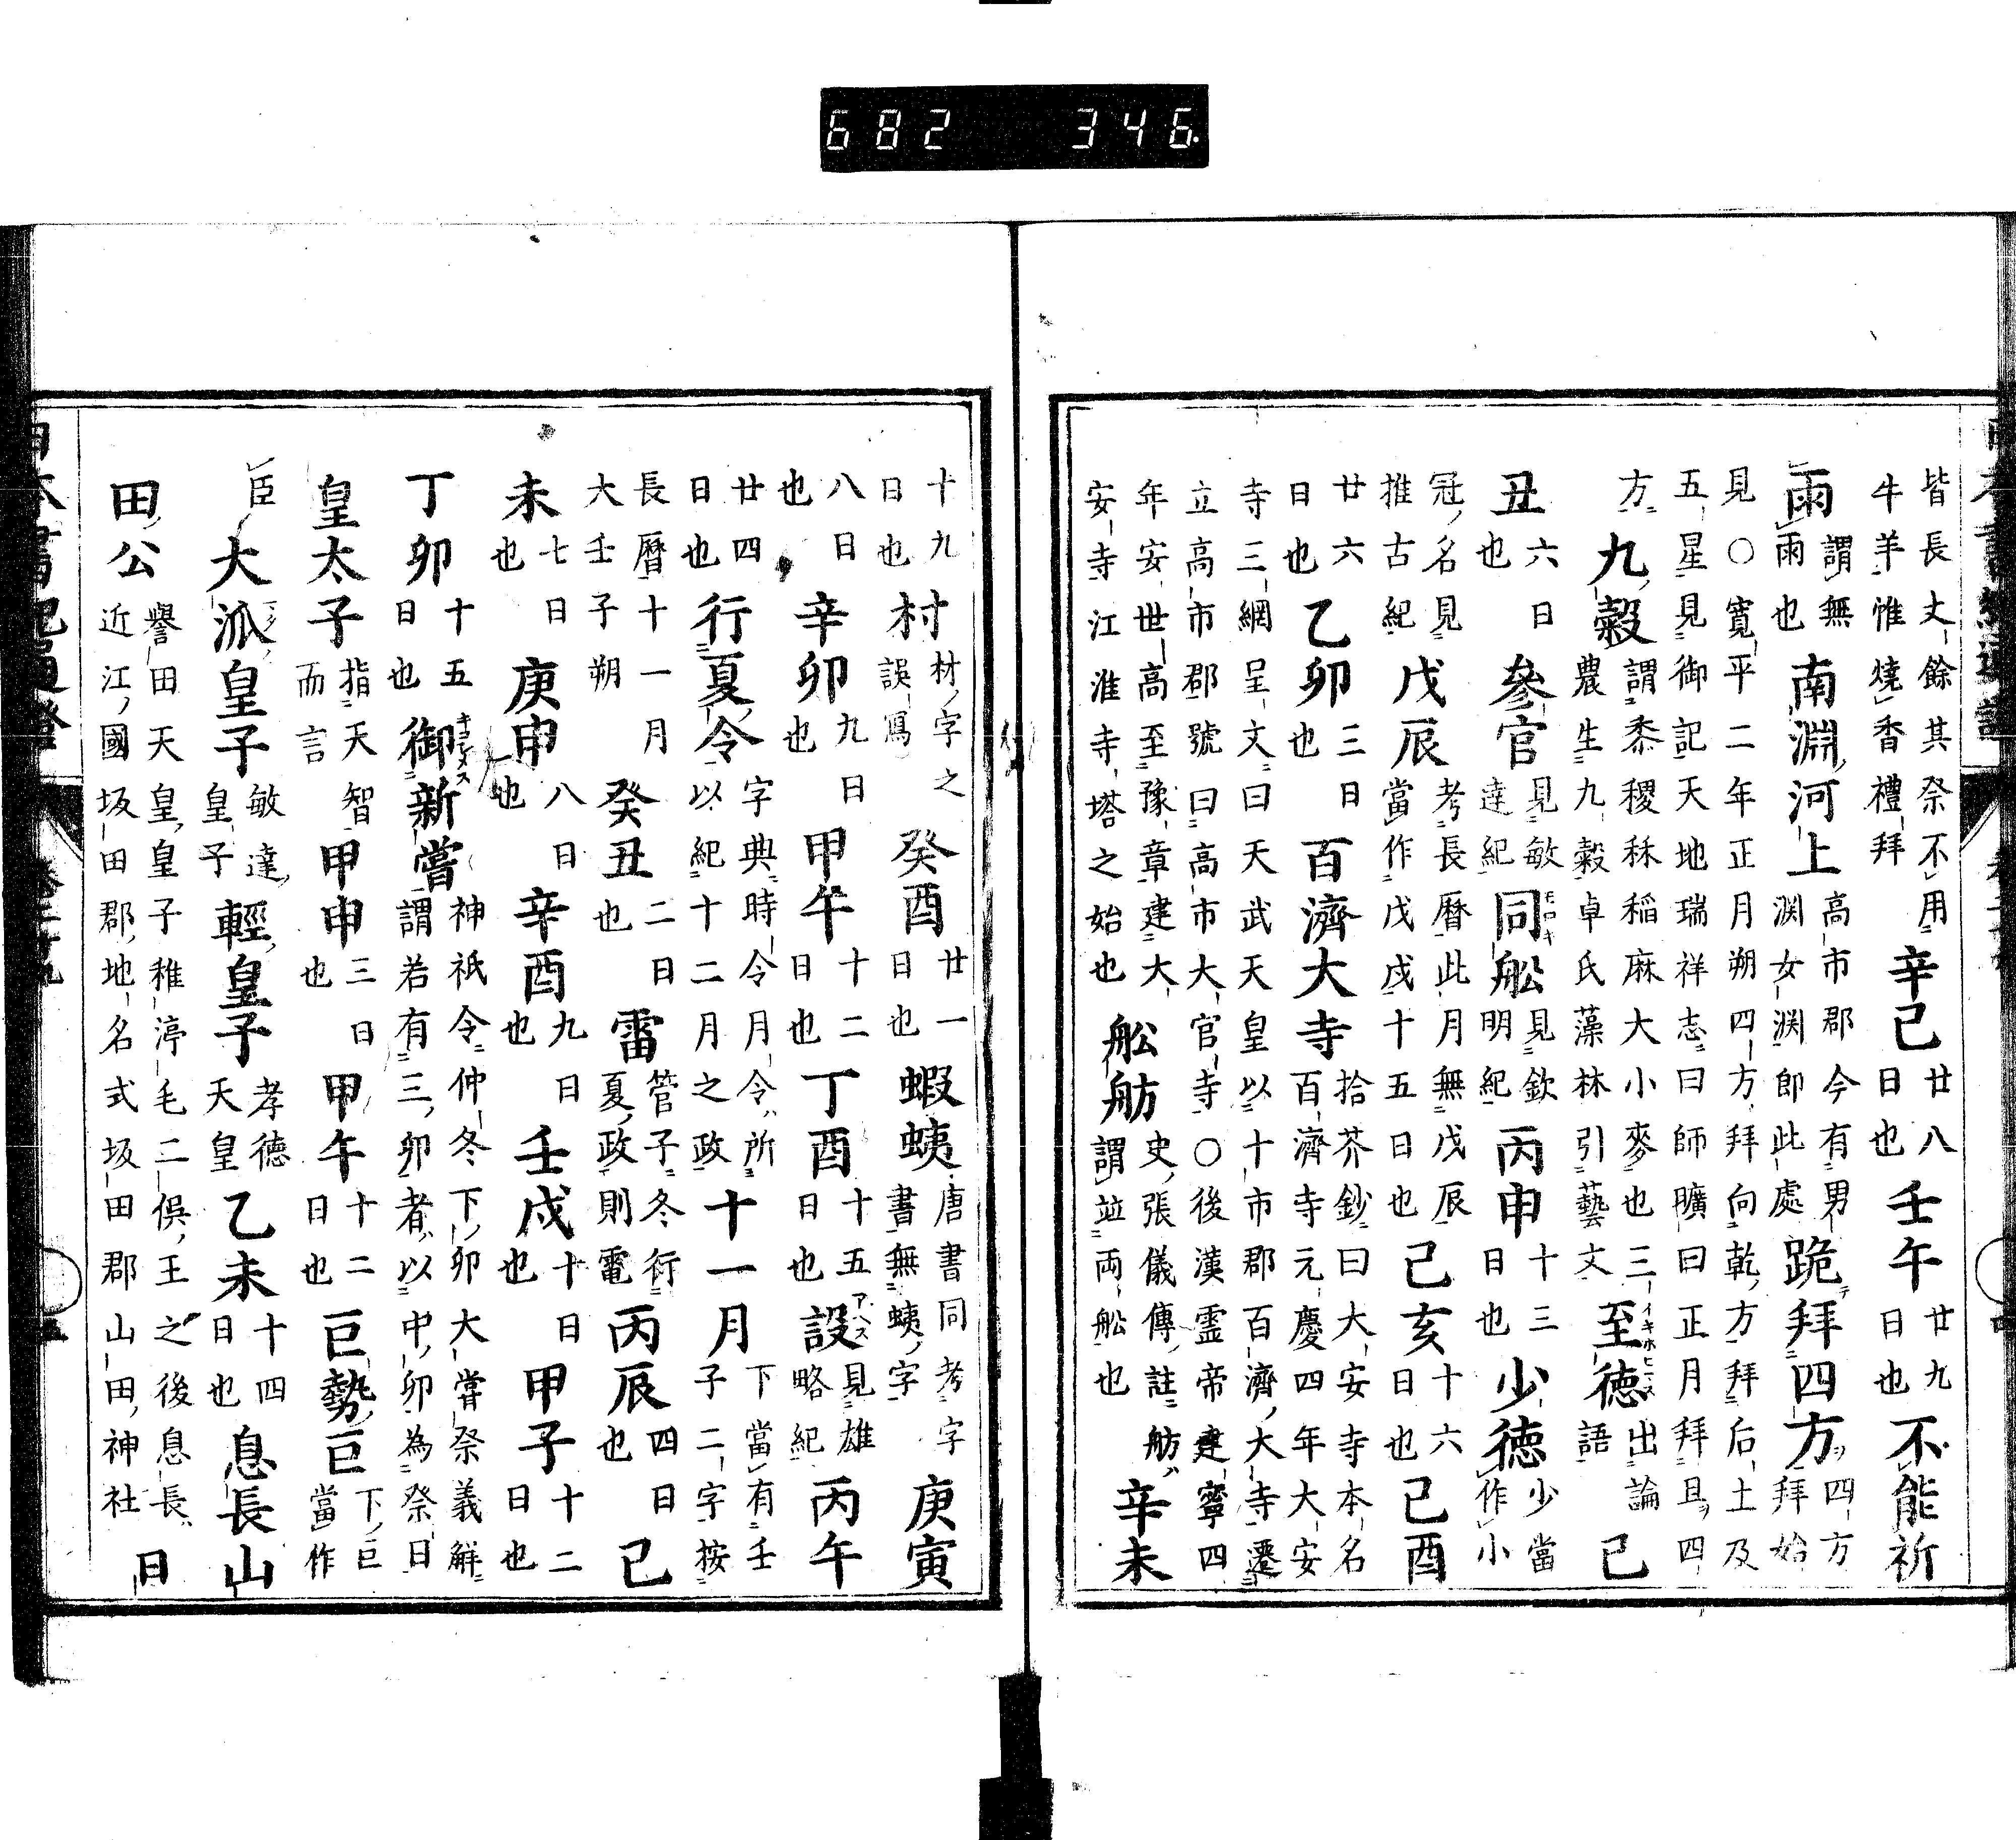 682 346
皆長丈餘其祭不用牛羊惟燒香禮拜 辛巳 廿八日也 壬午 廿九日也 不能祈
雨 謂無雨也 南淵河上 高市郡今有男淵女淵郎此處 跪拜四方 四方拜始
見○寬平二年正月朔四方拜向乾方拜后土及五星見御記天地瑞祥志曰師曠曰正月拜且四
方 九穀 謂黍稷秫稲麻大小麥也三農生九穀卓氏藻林引藝文 至徳 イキホヒニス 出論語 己
丑 六日也 參官 見敏達紀 同舩 モロキ 見欽明紀 丙申 十三日也 少徳 少當作小
冠名見推古紀 戊辰 考長曆此月無戊辰當作戊戌十五日也 己亥 十六日也 己酉
廿六日也 乙卯 三日也 百濟大寺 拾芥鈔曰大安寺本名百濟寺元慶四年大安
寺三網呈文曰天武天皇以十市郡百濟大寺遷立高市郡號曰高市大官寺○後漢靈帝建寧四
年安世高至豫章建大安寺江淮寺塔之始也 舩舫 史張儀傳註舫謂並両舩也 辛未
十九日也 村 材字之誤寫 癸酉 廿一日也 蝦蛦 唐書同考字書無蛦字 庚寅
八日也 辛卯 九日也 甲午 十二日也 丁酉 十五日也 設 アヘス 見雄略紀 丙午
廿四日也 行夏令 字典時令月令所以紀十二月之政 十一月 下當有壬子二字按
長曆十一月大壬子朔 癸丑 二日也 雷 管子冬行夏政則電 丙辰 四日也 己
未 七日也 庚申 八日也 辛酉 九日也 壬戌 十日也 甲子 十二日也
丁卯 十五日也 御新嘗 キコシメス 神祇令仲冬下卯大嘗祭義解謂若有三卯者以中卯為祭日
皇太子 指天智而言 甲申 三日也 甲午 十二日也 巨勢巨 下巨當作
臣 大派皇子 敏達皇子 輕皇子 孝徳天皇 乙未 十四日也 息長山
田公 譽田天皇皇子稚渟毛二俣王之後息長近江國坂田郡地名式坂田郡山田神社 日